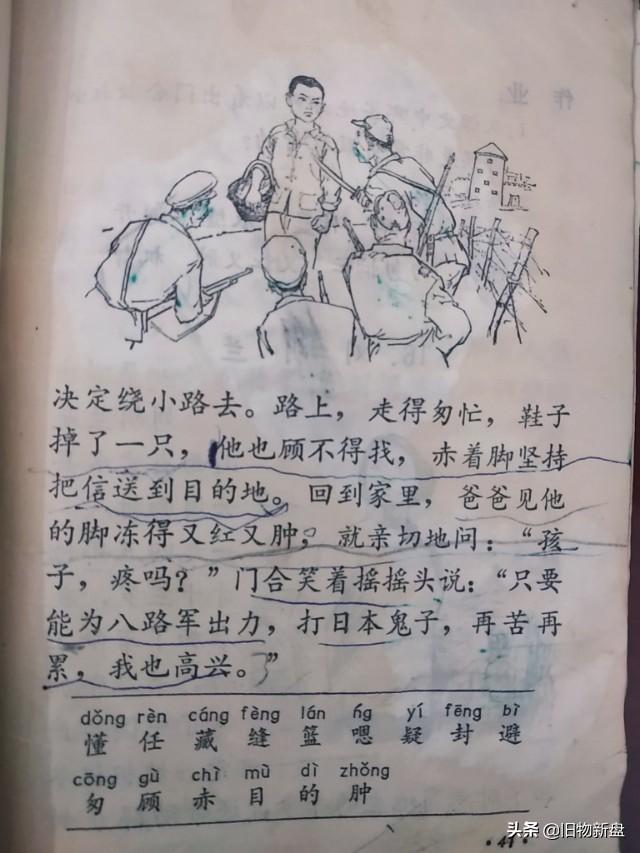 决定绕小路去。路上，走得匆忙，鞋子
掉了一只，他也顾不得找，赤着脚坚持
把信送到目的地。回到家里，爸爸见他
的脚冻得又红又肿，就亲切地问：“孩
子，疼吗？”门合笑着摇摇头说：“只要
能为八路军出力，打日本鬼子，再苦再
累，我也高兴。”
dǒng rèn cáng fèng lán ńg yí fēng bì
懂 任 藏 缝 篮 嗯 疑 封 避
cōng gù chì mù dì zhǒng
匆 顾 赤 目 的 肿
头条 @旧物新盘